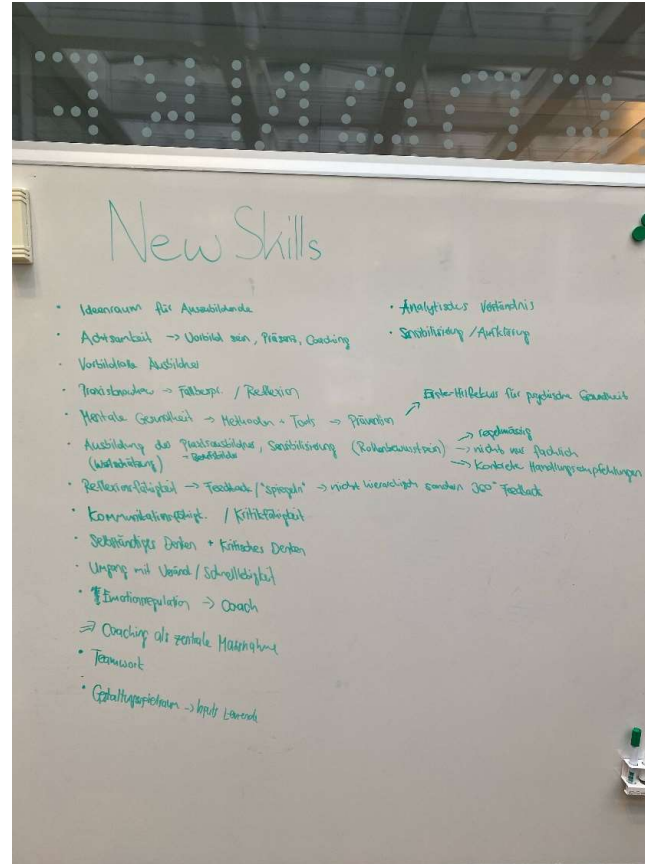 New Skills
• Ideenraum für Auszubildende
• Achtsamkeit → Vorbild sein, Präsenz, Coaching
• Vorbildrolle Ausbildner
• → Fallbespr. / Reflexion
• Mentale Gesundheit → Methoden + Tools → Prävention
↗ Erste-Hilfekurs für psychische Gesundheit
• Ausbildung der Praxisausbildner, Sensibilisierung (Rollenbewusstsein) → regelmässig
(Wertschätzung) - Berufsbilder → nicht nur fachlich
→ Konkrete Handlungsempfehlungen
• Reflexionsfähigkeit → Feedback / "spiegeln" → nicht hierarchisch sondern 360° Feedback
• Kommunikationsfähigk. / Kritikfähigkeit
• Selbständiges Denken + Kritisches Denken
• Umgang mit Veränd. / Schnelllebigkeit
• Emotionsregulation → Coach
⇒ Coaching als zentrale Massnahme
• Teamwork
• Gestaltungsfreiraum → Inputs Lernende
• Analytisches Verständnis
• Sensibilisierung / Aufklärung